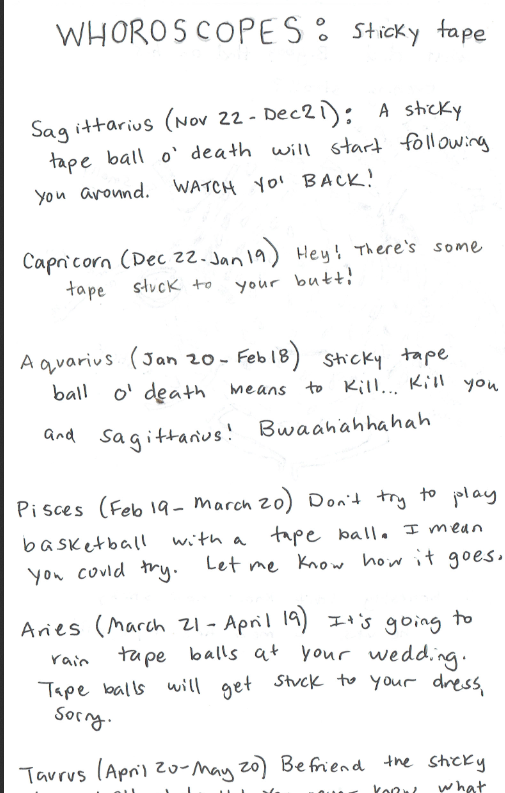 WHOROSCOPES: Sticky tape
Sagittarius (Nov 22 - Dec 21): A sticky
tape ball o' death will start following
you around. WATCH YO' BACK!
Capricorn (Dec 22 - Jan 19) Hey! There's some
tape stuck to your butt!
Aquarius (Jan 20 - Feb 18) Sticky tape
ball o' death means to kill... Kill you
and Sagittarius! Bwaahahhahah
Pisces (Feb 19 - March 20) Don't try to play
basketball with a tape ball. I mean
you could try. Let me know how it goes.
Aries (March 21 - April 19) It's going to
rain tape balls at your wedding.
Tape balls will get stuck to your dress,
Sorry.
Taurus (April 20 - May 20) Befriend the sticky
know what